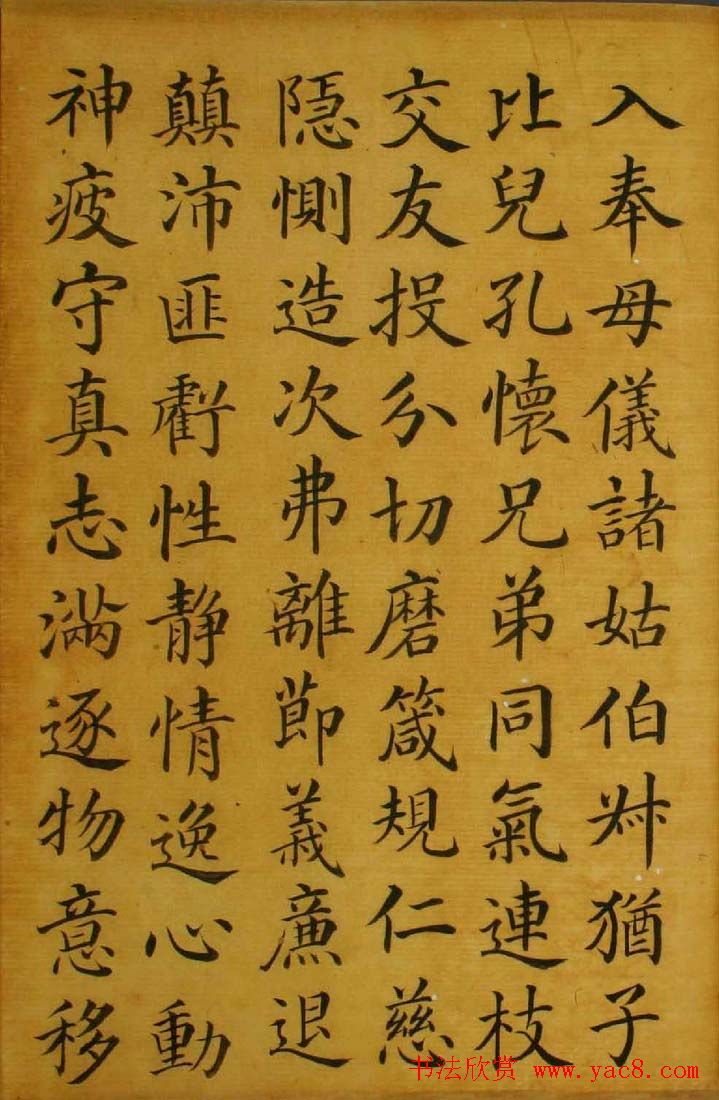 入奉母儀諸姑伯叔猶子
比兒孔懷兄弟同氣連枝
交友投分切磨箴規仁慈
隱惻造次弗離節義廉退
顛沛匪虧性靜情逸心動
神疲守真志滿逐物意移
书法欣赏 www.yac8.com